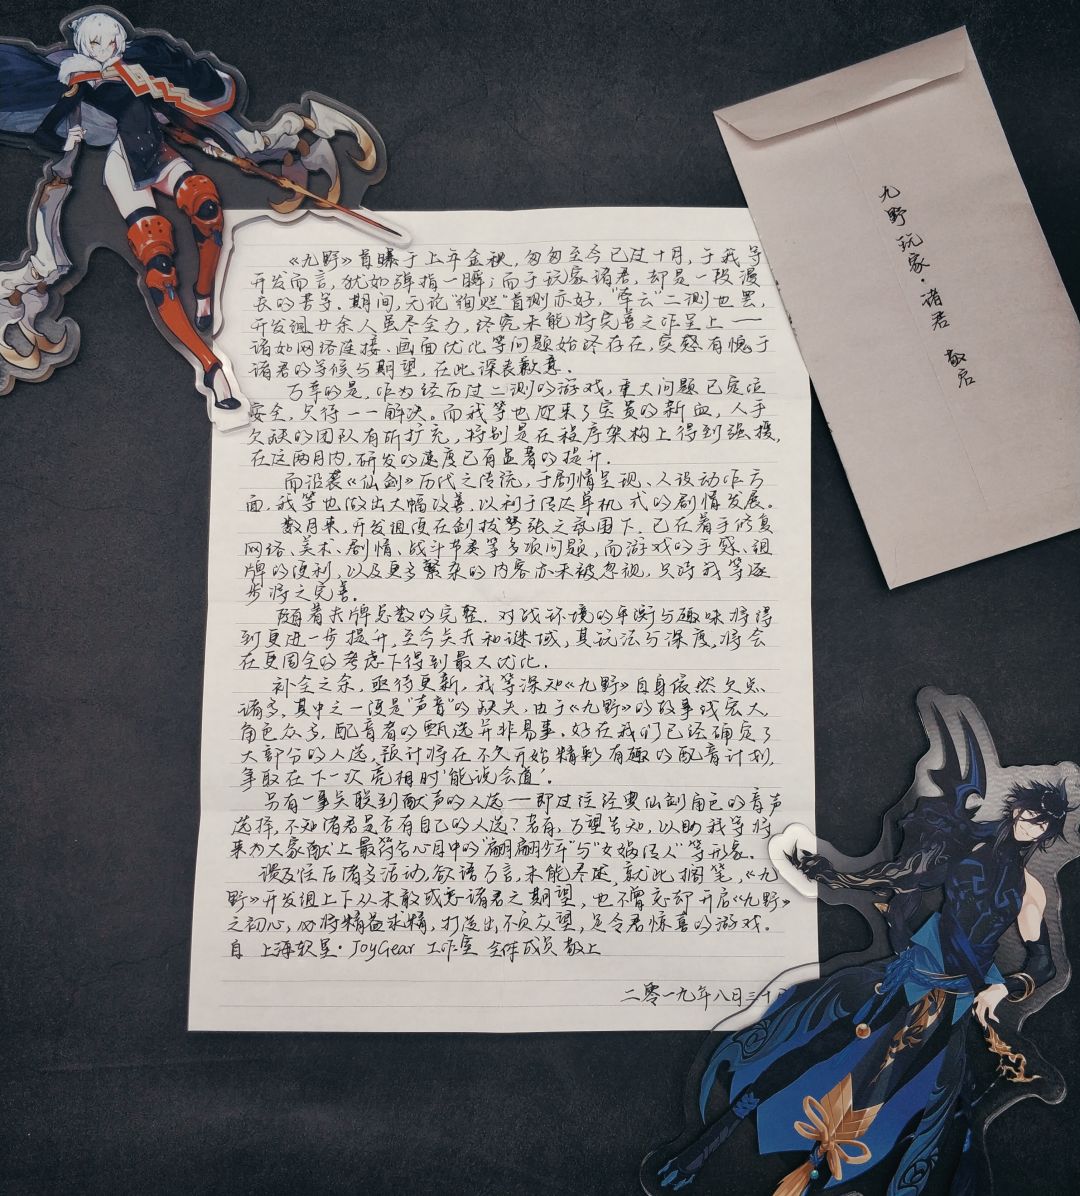 《九野》首曝于上年金秋，匆匆至今已过十月，于我等
开发而言，犹如弹指一瞬；而于玩家诸君，却是一段漫
长的苦等。期间，无论"绚烂"首测亦好，"牵云"二测也罢，
开发组廿余人虽尽全力，终究未能将完善之作呈上——
诸如网络连接、画面优化等问题始终存在，实感有愧于
诸君的等候与期望，在此深表歉意。
万幸的是，作为经历过二测的游戏，重大问题已定位
安全，只待一一解决。而我等也迎来了宝贵的新血，人手
欠缺的团队有所扩充，特别是在程序架构上得到强援，
在这两月内，研发的速度已有显著的提升。
而沿袭《仙剑》历代之传统，于剧情呈现、人设动作方
面，我等也做出大幅改善，以利于传达单机式的剧情发展。
数月来，开发组便在剑拔弩张之氛围下，已在着手修复
网络、美术、剧情、战斗节奏等多项问题，而游戏的手感、组
牌的便利，以及更多繁杂的内容亦未被忽视，只待我等逐
步将之完善。
随着卡牌总数的完整，对战环境的平衡与趣味将得
到更进一步提升，至今关卡和谜域，其玩法与深度，将会
在更周全的考虑下得到最大优化。
补全之余，亟待更新，我等深知《九野》自身依然欠点
诸多，其中之一便是"声音"的缺失，由于《九野》的故事线宏大，
角色众多，配音者的甄选并非易事。好在我们已经确定了
大部分的人选，预计将在不久开始精彩有趣的配音计划，
争取在下一次亮相时'能说会道'。
另有一事关联到献声的人选——即过往经典仙剑角色的音声
选择，不知诸君是否有自己的人选？若有，万望告知，以助我等将
来为大家献上最符合心目中的"翩翩少年"与"女娲传人"等形象。
谈及往后诸多活动，欲语万言，未能尽述，就此搁笔，《九
野》开发组上下从未敢或忘诸君之期望，也不曾忘却开启《九野》
之初心，必将精益求精，打造出不负众望，足令君惊喜的游戏。
自 上海软星·JoyGear 工作室 全体成员 敬上
二零一九年八月三十
九野玩家·诸君 敬启